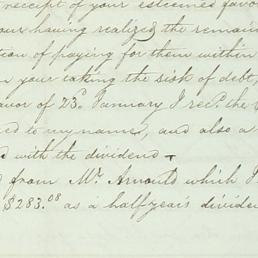 receipt of your esteemed favo
our having realized the remain
tion of paying for them within
n your taking the risk of debt,
avor of 23d January I recd. the
ed to my name, and also a
d with the dividend
from Mr. Arnould which I
$283.08 as a half year's dividen